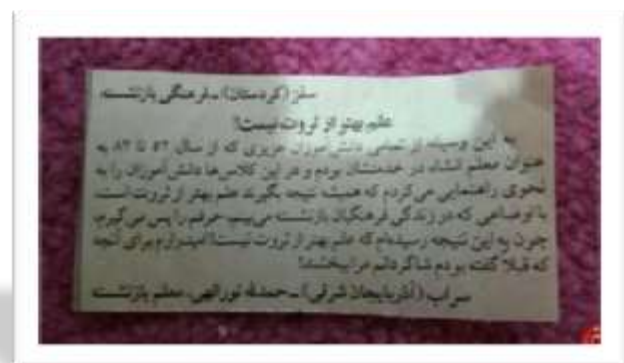 سقز (کردستان) ـ فرهنگی بازنشسته
علم بهتر از ثروت نیست!
به این وسیله از تمامی دانش‌آموزان عزیزی که از سال ۵۲ تا ۸۲ به
عنوان معلم انشاء در خدمتشان بودم و در این کلاس‌ها دانش‌آموزان را به
نحوی راهنمایی می‌کردم که همیشه نتیجه بگیرند علم بهتر از ثروت است،
با اوضاعی که در زندگی فرهنگیان بازنشسته می‌بینم، حرفم را پس می‌گیرم،
چون به این نتیجه رسیده‌ام که علم بهتر از ثروت نیست! امیدوارم برای آنچه
که قبلا گفته بودم شاگردانم مرا ببخشند!
سراب (آذربایجان شرقی) ـ حمدالله نورالهی، معلم بازنشسته